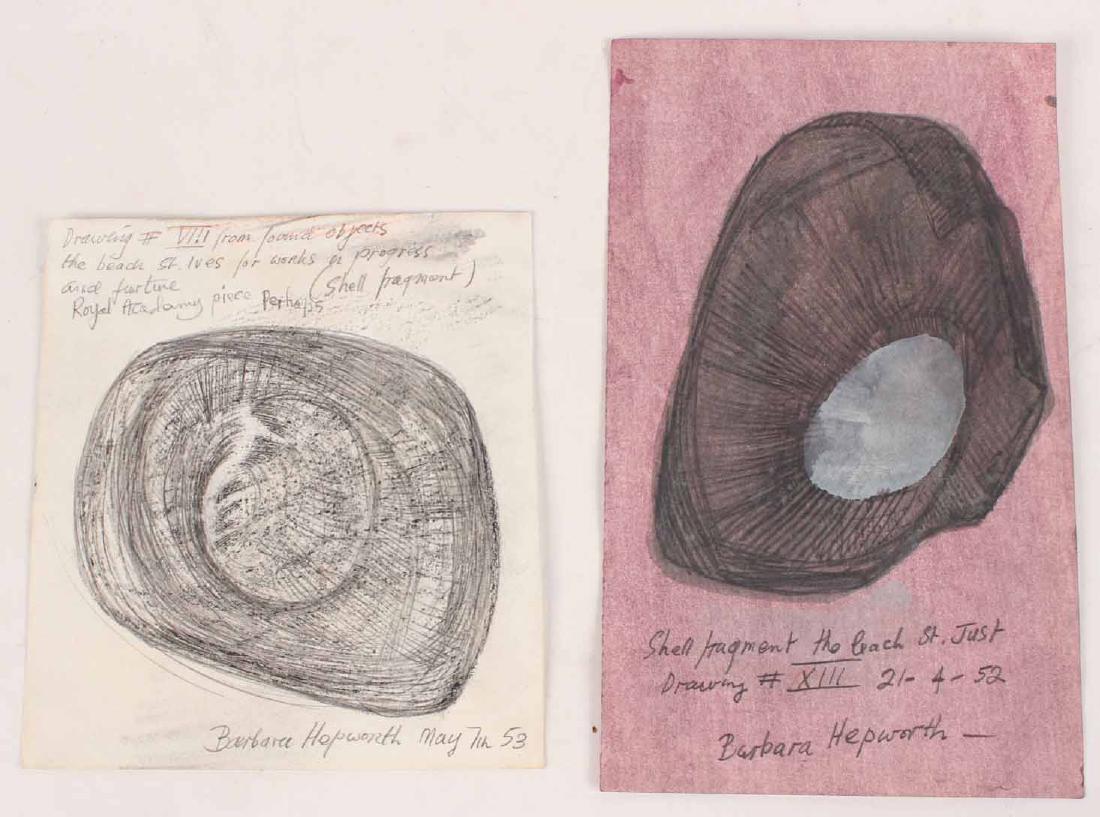 Drawing # VIII from found objects
the beach St. Ives for works in progress
and furtine (Shell fragment)
Royal Academy piece Perhaps
Barbara Hepworth May 7th 53
Shell fragment the beach St. Just
Drawing # XIII 21-4-52
Barbara Hepworth —